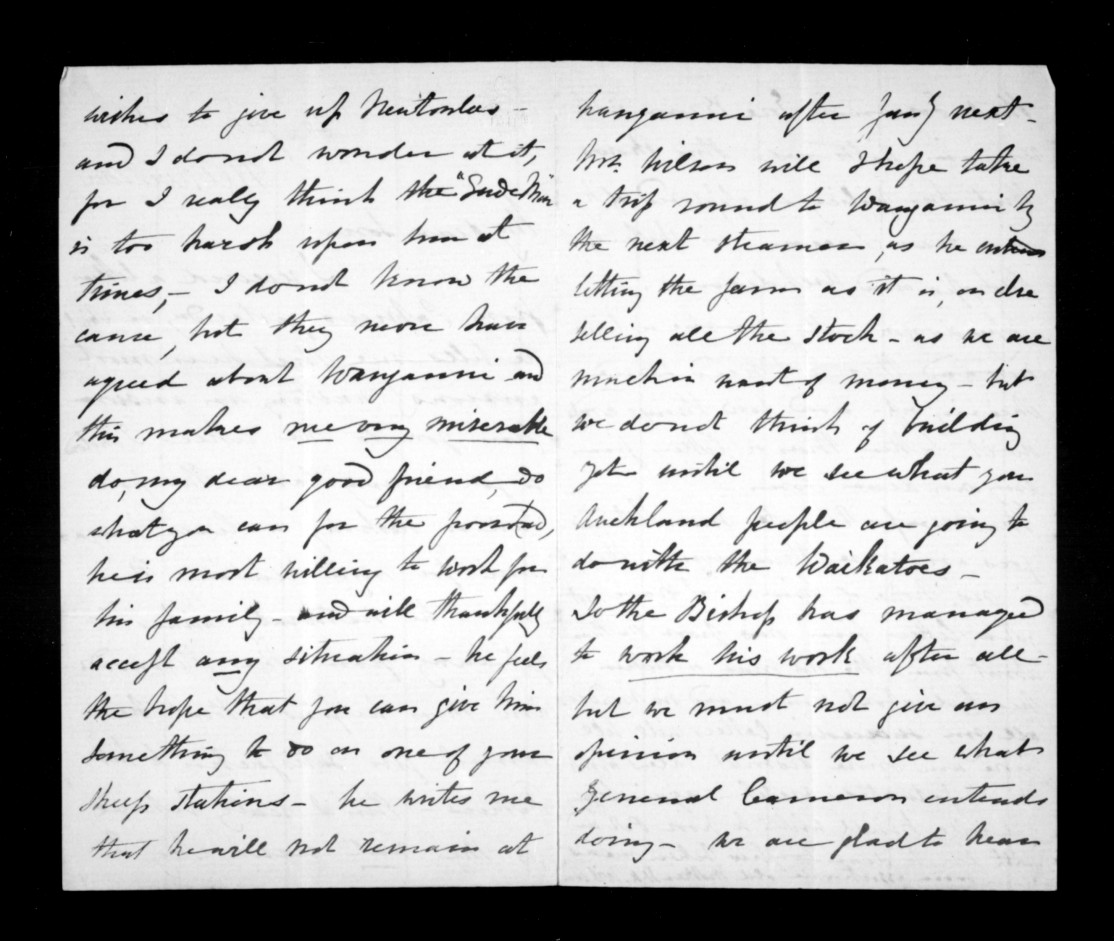 wishes to give up
and I do not wonder at it,
for I really think the "Gude Man
is too harsh upon him at
times,- I do not know the
cause, but they never have
agreed about Wanganui and
this makes me very miserable
do, my dear good friend, do
what you can for the poor lad,
he is most willing to work for
his family - and will thankfully
accept any situation - he feels
the hope that you can give him
something to do on one of your
sheep stations - he writes me
that he will not remain at
Wanganui after Jany next -
Mrs. Wilson will I hope take
a trip round to Wanganui by
the next steamer, as he
letting the farm as it is, or else
selling all the stock - as we are
much in want of money - but
we do not think of building
yet until we see what you
Auckland people are going to
do with the Waikatoes -
So the Bishop has managed
to work his work after all -
but we must not give an
opinion until we see what
General Cameron entends
doing - we are glad to hear